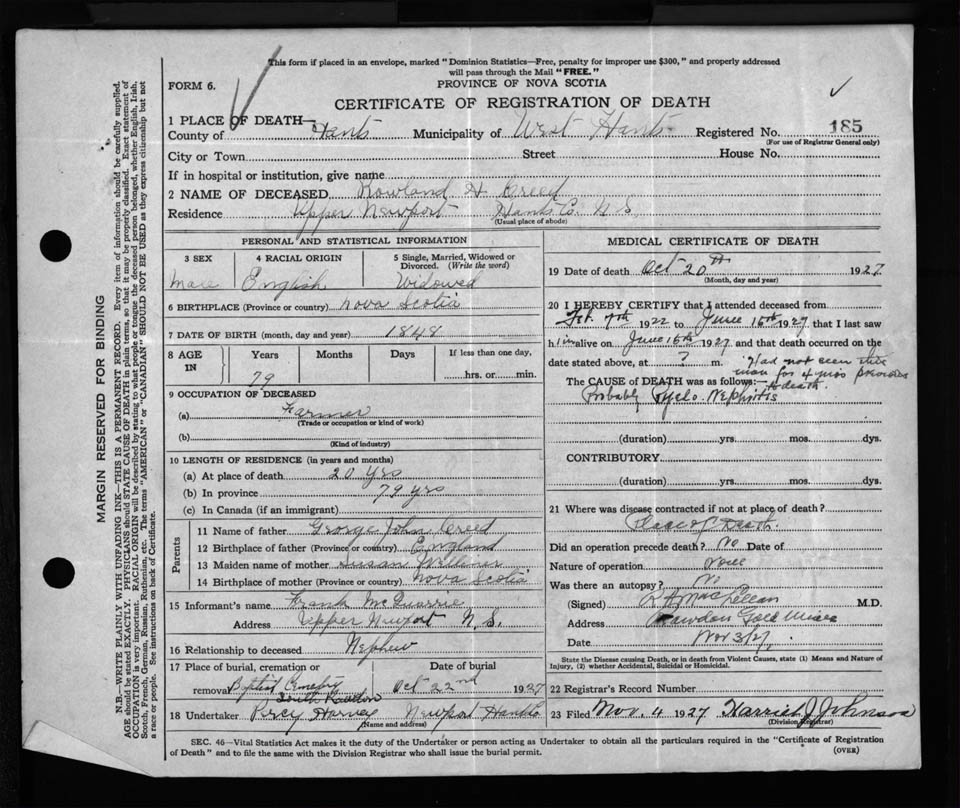 This form if placed in an envelope, marked "Dominion Statistics—Free, penalty for improper use $300," and properly addressed
will pass through the Mail "FREE."
FORM 6.
PROVINCE OF NOVA SCOTIA
CERTIFICATE OF REGISTRATION OF DEATH
1 PLACE OF DEATH—
County of Hants Municipality of West Hants Registered No. 185
(For use of Registrar General only)
City or Town Street House No.
If in hospital or institution, give name
2 NAME OF DECEASED Rowland H Creed
Residence Upper Newport Hants Co. N S
(Usual place of abode)
PERSONAL AND STATISTICAL INFORMATION
3 SEX 4 RACIAL ORIGIN 5 Single, Married, Widowed or Divorced. (Write the word)
Male English Widowed
6 BIRTHPLACE (Province or country) Nova Scotia
7 DATE OF BIRTH (month, day and year) 1848
8 AGE IN Years Months Days If less than one day,
79 hrs. or min.
9 OCCUPATION OF DECEASED
(a) Farmer
(Trade or occupation or kind of work)
(b)
(Kind of industry)
10 LENGTH OF RESIDENCE (in years and months)
(a) At place of death 20 yrs
(b) In province 79 yrs
(c) In Canada (if an immigrant)
Parents
11 Name of father George John Creed
12 Birthplace of father (Province or country) England
13 Maiden name of mother Susan
14 Birthplace of mother (Province or country) Nova Scotia
15 Informant's name Frank McQuarrie
Address Upper Newport N. S.
16 Relationship to deceased Nephew
17 Place of burial, cremation or removal Date of burial
Baptist Cemetry Oct 22nd 1927
South Rawdon
18 Undertaker Percy Harvey Newport Hants Co
(Name and address)
MEDICAL CERTIFICATE OF DEATH
19 Date of death Oct 20th 1927
(Month, day and year)
20 I HEREBY CERTIFY that I attended deceased from
Feb. 7th 1922 to June 16th 1927 that I last saw
h im alive on June 16th 1927 and that death occurred on the
date stated above, at ? m. Had not seen this
man for 4 mos previous
The CAUSE of DEATH was as follows:— to death.
Probably Pyelo. Nephritis
(duration) yrs. mos. dys.
CONTRIBUTORY
(duration) yrs. mos. dys.
21 Where was disease contracted if not at place of death?
Place of Death.
Did an operation precede death? No Date of
Nature of operation
Was there an autopsy? No
(Signed) R A MacLellan M.D.
Address Rawdon Gold Mines
Date Nov 3/27
State the Disease causing Death, or in death from Violent Causes, state (1) Means and Nature of
Injury, (2) whether Accidental, Suicidal or Homicidal.
22 Registrar's Record Number
23 Filed Nov. 4 1927 J. Johnson
(Division Registrar)
SEC. 46—Vital Statistics Act makes it the duty of the Undertaker or person acting as Undertaker to obtain all the particulars required in the "Certificate of Registration
of Death" and to file the same with the Division Registrar who shall issue the burial permit. (OVER)
MARGIN RESERVED FOR BINDING
N.B.—WRITE PLAINLY WITH UNFADING INK—THIS IS A PERMANENT RECORD. Every item of information should be carefully supplied.
AGE should be stated EXACTLY. PHYSICIANS should STATE CAUSE OF DEATH in plain terms, so that it may be properly classified. Exact statement of
OCCUPATION is very important. RACIAL ORIGIN will be described by stating to what people or tongue the deceased person belonged, whether English, Irish,
Scotch, French, German, Russian, Ruthenian, etc. The terms "AMERICAN" or "CANADIAN" SHOULD NOT BE USED as they express citizenship but not
race or people. See instructions on back of Certificate.